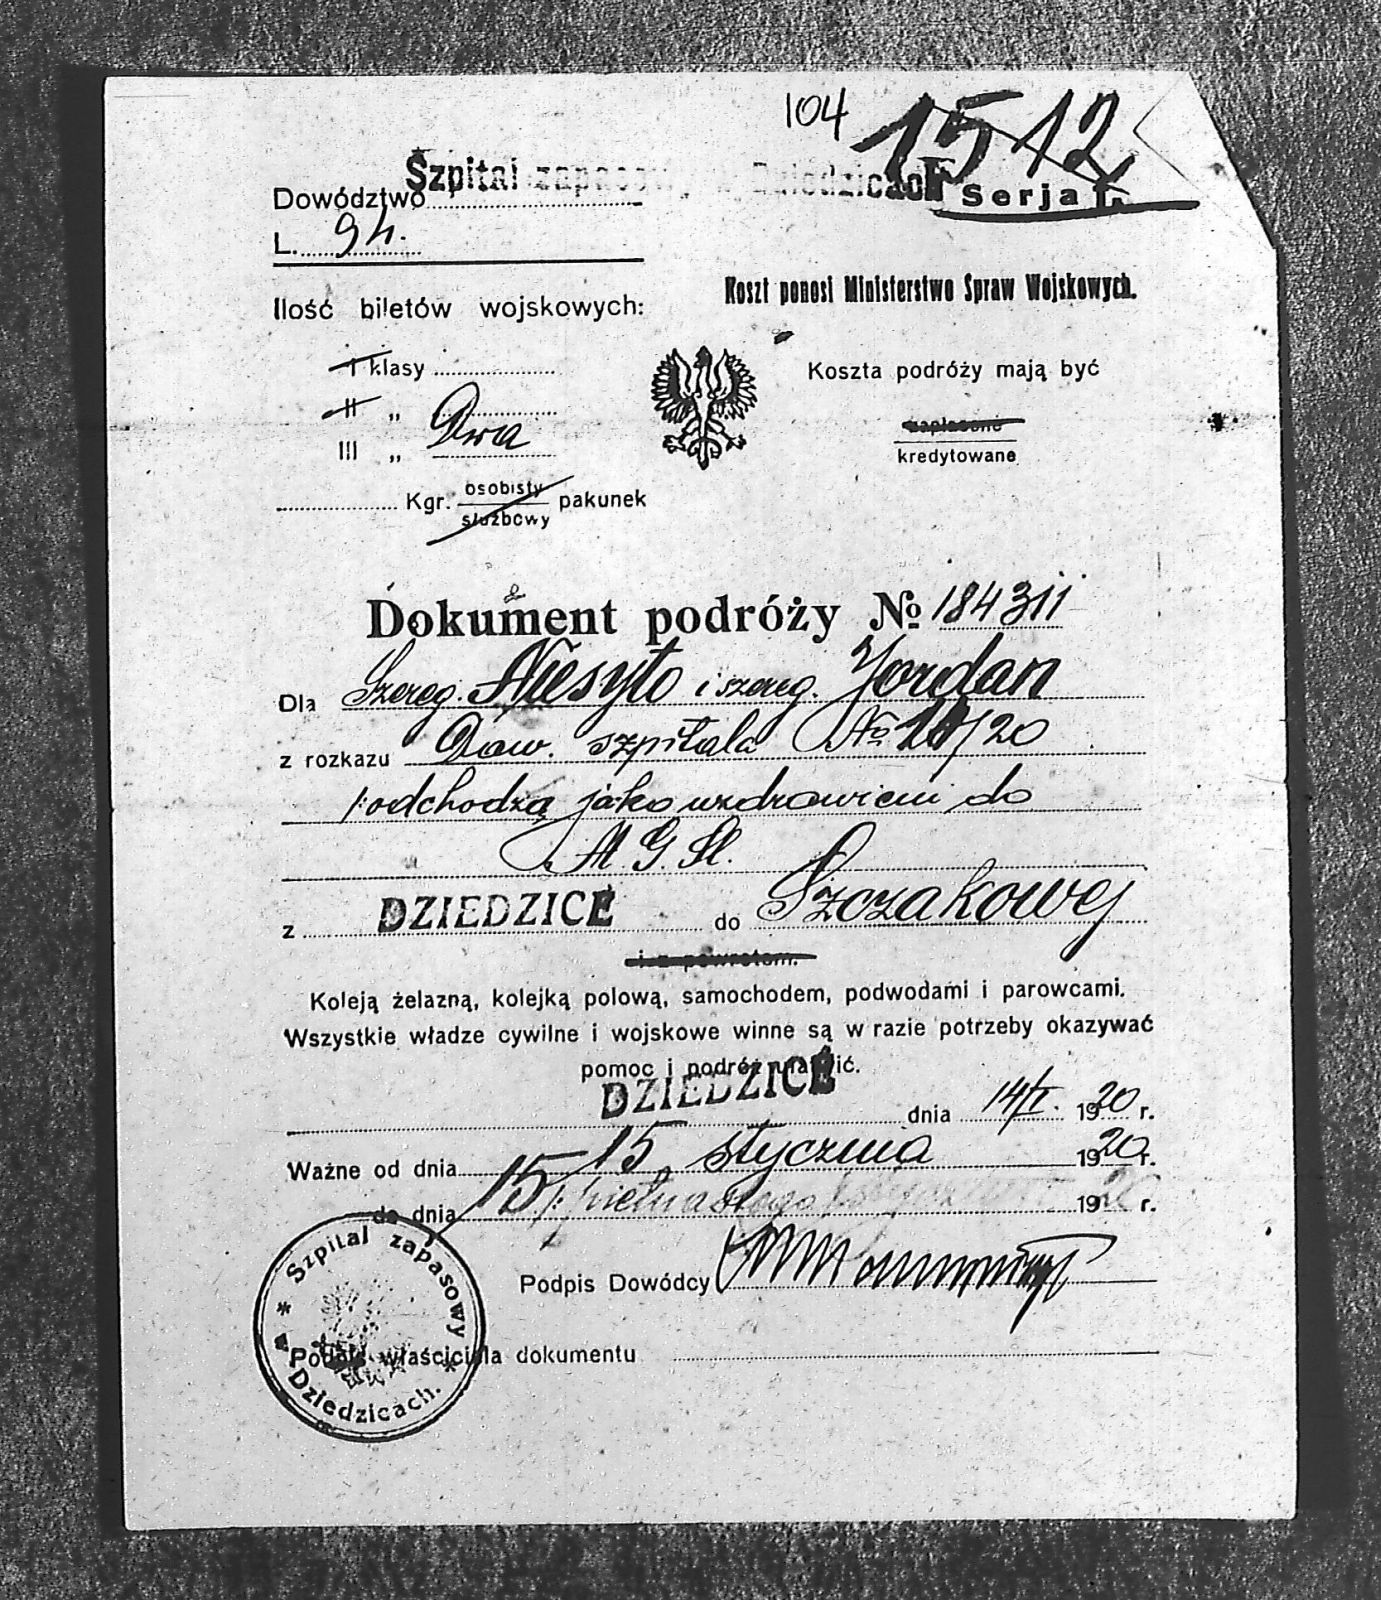 104 1512
Dowództwo Szpital zapasowy w Dziedzicach Serja I.
L. 94.
Ilość biletów wojskowych:
Koszt ponosi Ministerstwo Spraw Wojskowych.
I klasy
Koszta podróży mają być
II „
zapłacone
III „ Dwa
kredytowane
Kgr. osobisty
służbowy pakunek
Dokument podróży № 184311
Dla Szereg. Niesyto i szereg. Jordan
z rozkazu Dow. szpitala № /20
odchodzą jako uzdrowieni do
z DZIEDZICE do Szczakowej
i z powrotem.
Koleją żelazną, kolejką polową, samochodem, podwodami i parowcami.
Wszystkie władze cywilne i wojskowe winne są w razie potrzeby okazywać
pomoc i podróż ułatwić.
DZIEDZICE dnia 14/I. 1920 r.
Ważne od dnia 15 stycznia 1920 r.
do dnia 15 /: piętnastego stycznia 1920 r.
Podpis Dowódcy
Podpis właściciela dokumentu
* Szpital zapasowy * w Dziedzicach.